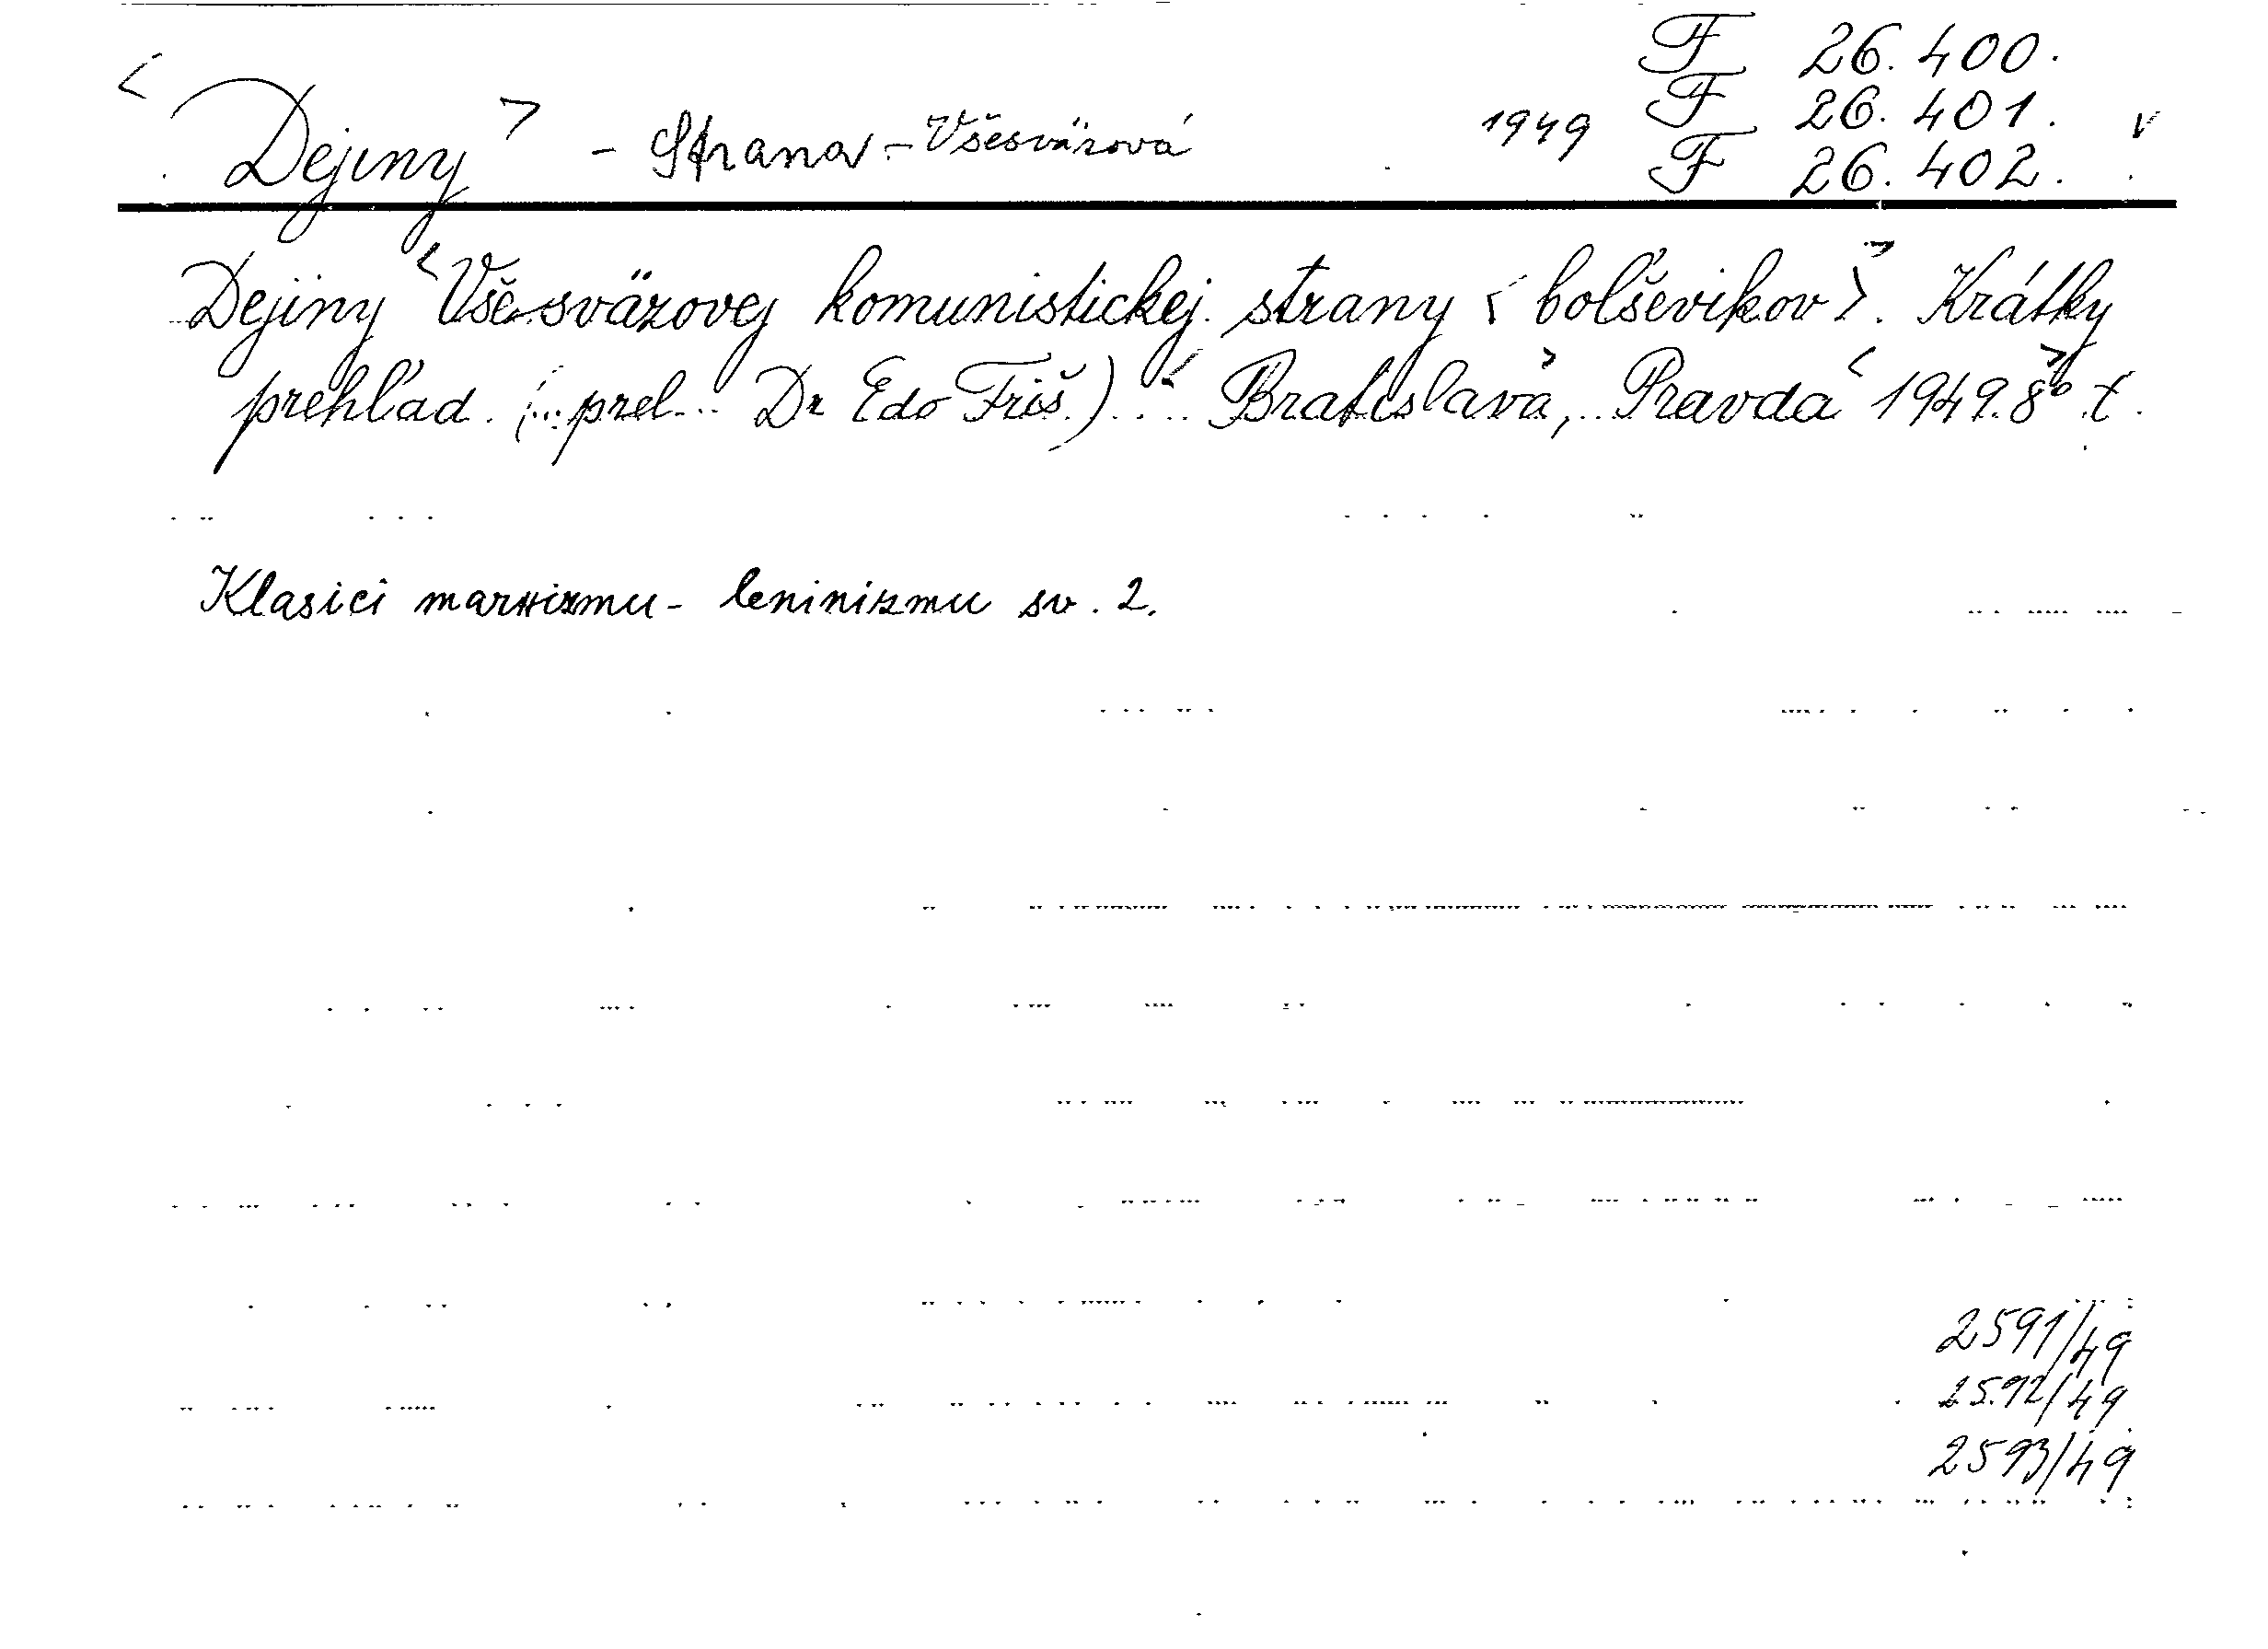 F 26.400.
F 26.401. v
<Dejiny> - Strana - Všesväzová 1949 F 26.402.
Dejiny <Všesväzovej komunistickej strany <bolševikov>>. Krátky
prehľad. (... prel... Dr Edo Friš.) ... <Bratislava>, Pravda <1949.> 8° t.
Klasici marxizmu - leninizmu sv. 2.
2591/49
2592/49
2593/49